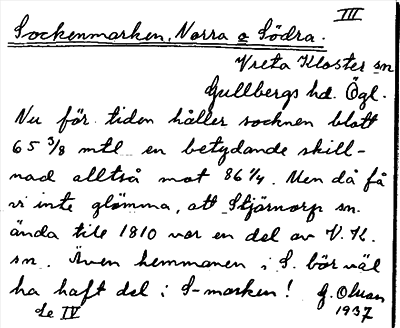 III
Sockenmarken, Norra o Södra.
Vreta Kloster sn
Gullbergs hd. Ögl.
Nu för tiden håller socknen blott
65 3/8 mtl en betydande skill-
nad alltså mot 86 1/4. Men då få
vi inte glömma, att Stjärnorp sn.
ända till 1810 var en del av V. K.
sn. Även hemmanen i S. bör väl
ha haft del i S-marken! G. Olsson
se IV 1937